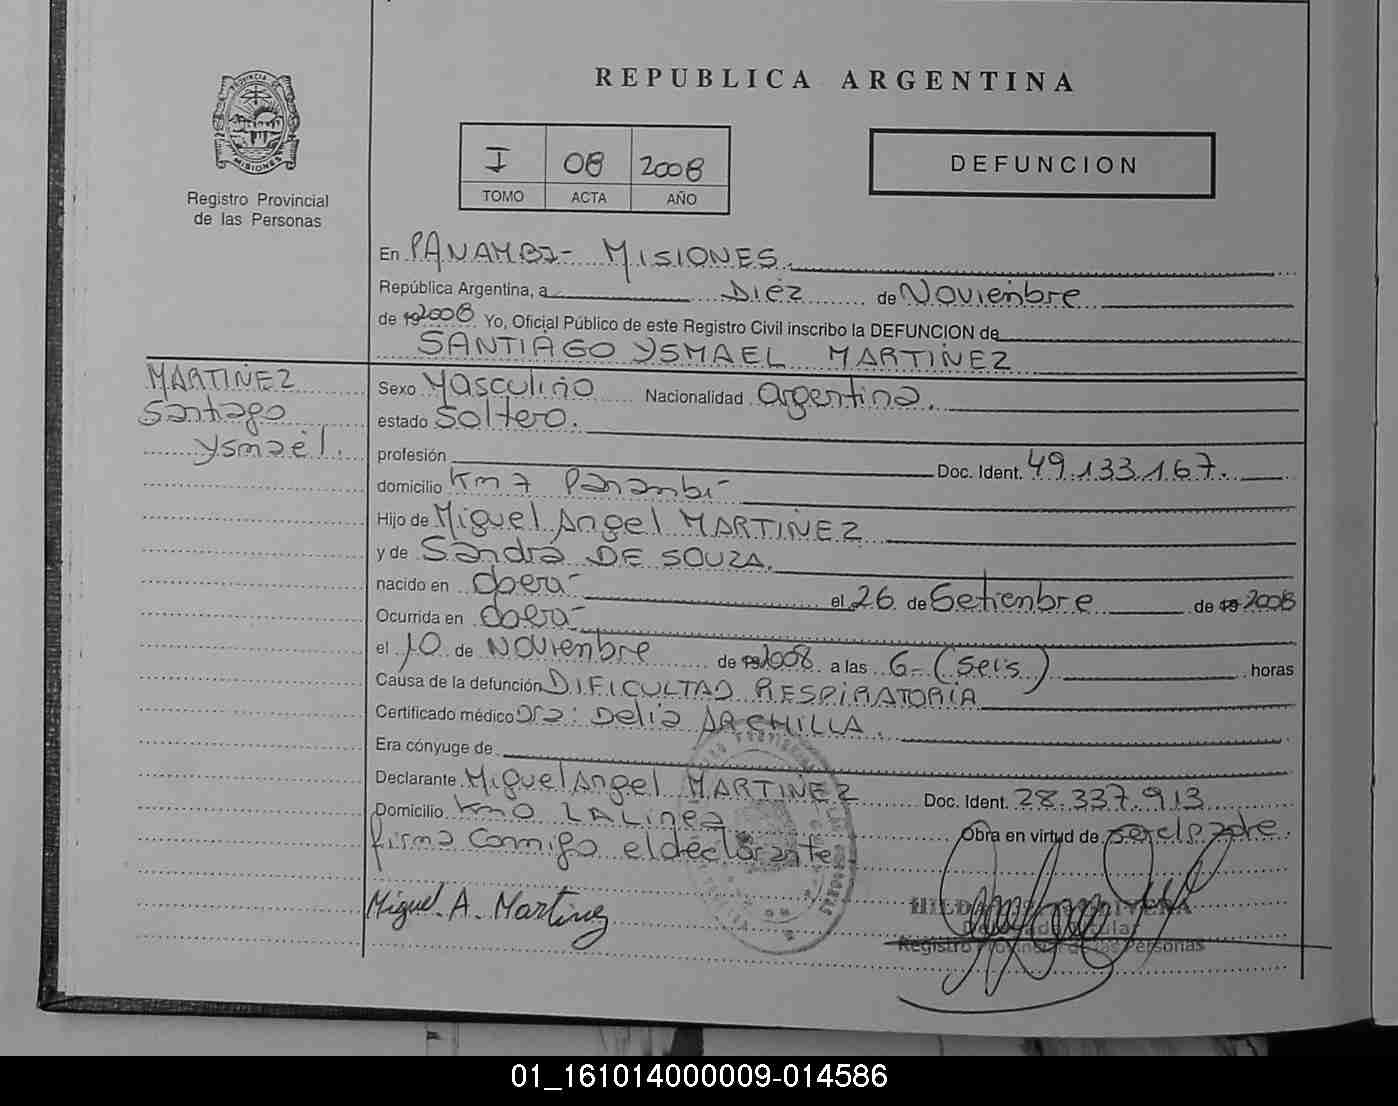 REPUBLICA ARGENTINA
PROVINCIA DE
MISIONES
Registro Provincial
de las Personas
I 08 2008
TOMO ACTA AÑO
DEFUNCION
En PANAMBI- MISIONES.
República Argentina, a Diez de Noviembre
de 192008 Yo, Oficial Público de este Registro Civil inscribo la DEFUNCION de
SANTIAGO YSMAEL MARTINEZ
MARTINEZ
Santiago
Ysmael.
Sexo Masculino Nacionalidad Argentina.
estado Soltero.
profesión Doc. Ident. 49.133.167.
domicilio Km 7 Panambí
Hijo de Miguel Angel MARTINEZ
y de Sandra DE SOUZA.
nacido en Oberá el 26 de Setienbre de 19 2008
Ocurrida en Oberá
el 10 de Noviembre de 192008 a las 6- (seis) horas
Causa de la defunción DIFICULTAD RESPIRATORIA
Certificado médico Dra: Delia ARCHILLA.
Era cónyuge de
Declarante Miguel Angel MARTINEZ Doc. Ident. 28.337.913
Domicilio Km 0 LA Linea
Obra en virtud de
firma Conmigo el declarante
Miguel A. Martinez
Registro Provincial de las Personas
01_161014000009-014586